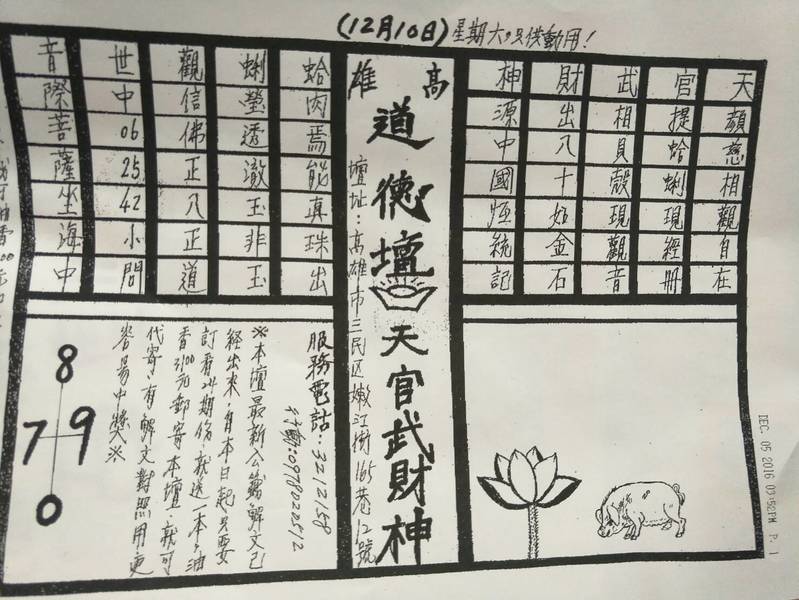 (12月10日)星期六，只供動用！
天顏慈相觀自在
官提蛤蜊現經冊
武相貝殼現觀音
財出八十如金石
神源中國恆統記
高雄
道德壇
天官武財神
壇址：高雄市三民区嫩江街165巷12號
蛤肉焉能真珠出
蜊瑩透澈玉非玉
觀信佛正八正道
世中06 25 42小問
音際菩薩坐海中
服務電話：3212158
行動:0978022512
※本壇最新公籤解文已
経出来，自本日起只要
訂看24期份，就送一本，油
香3100元郵寄本壇，就可
代寄，有解文對照用更
容易中獎※
8
7 9
0
DEC. 05 2016 03:52PM P. 1